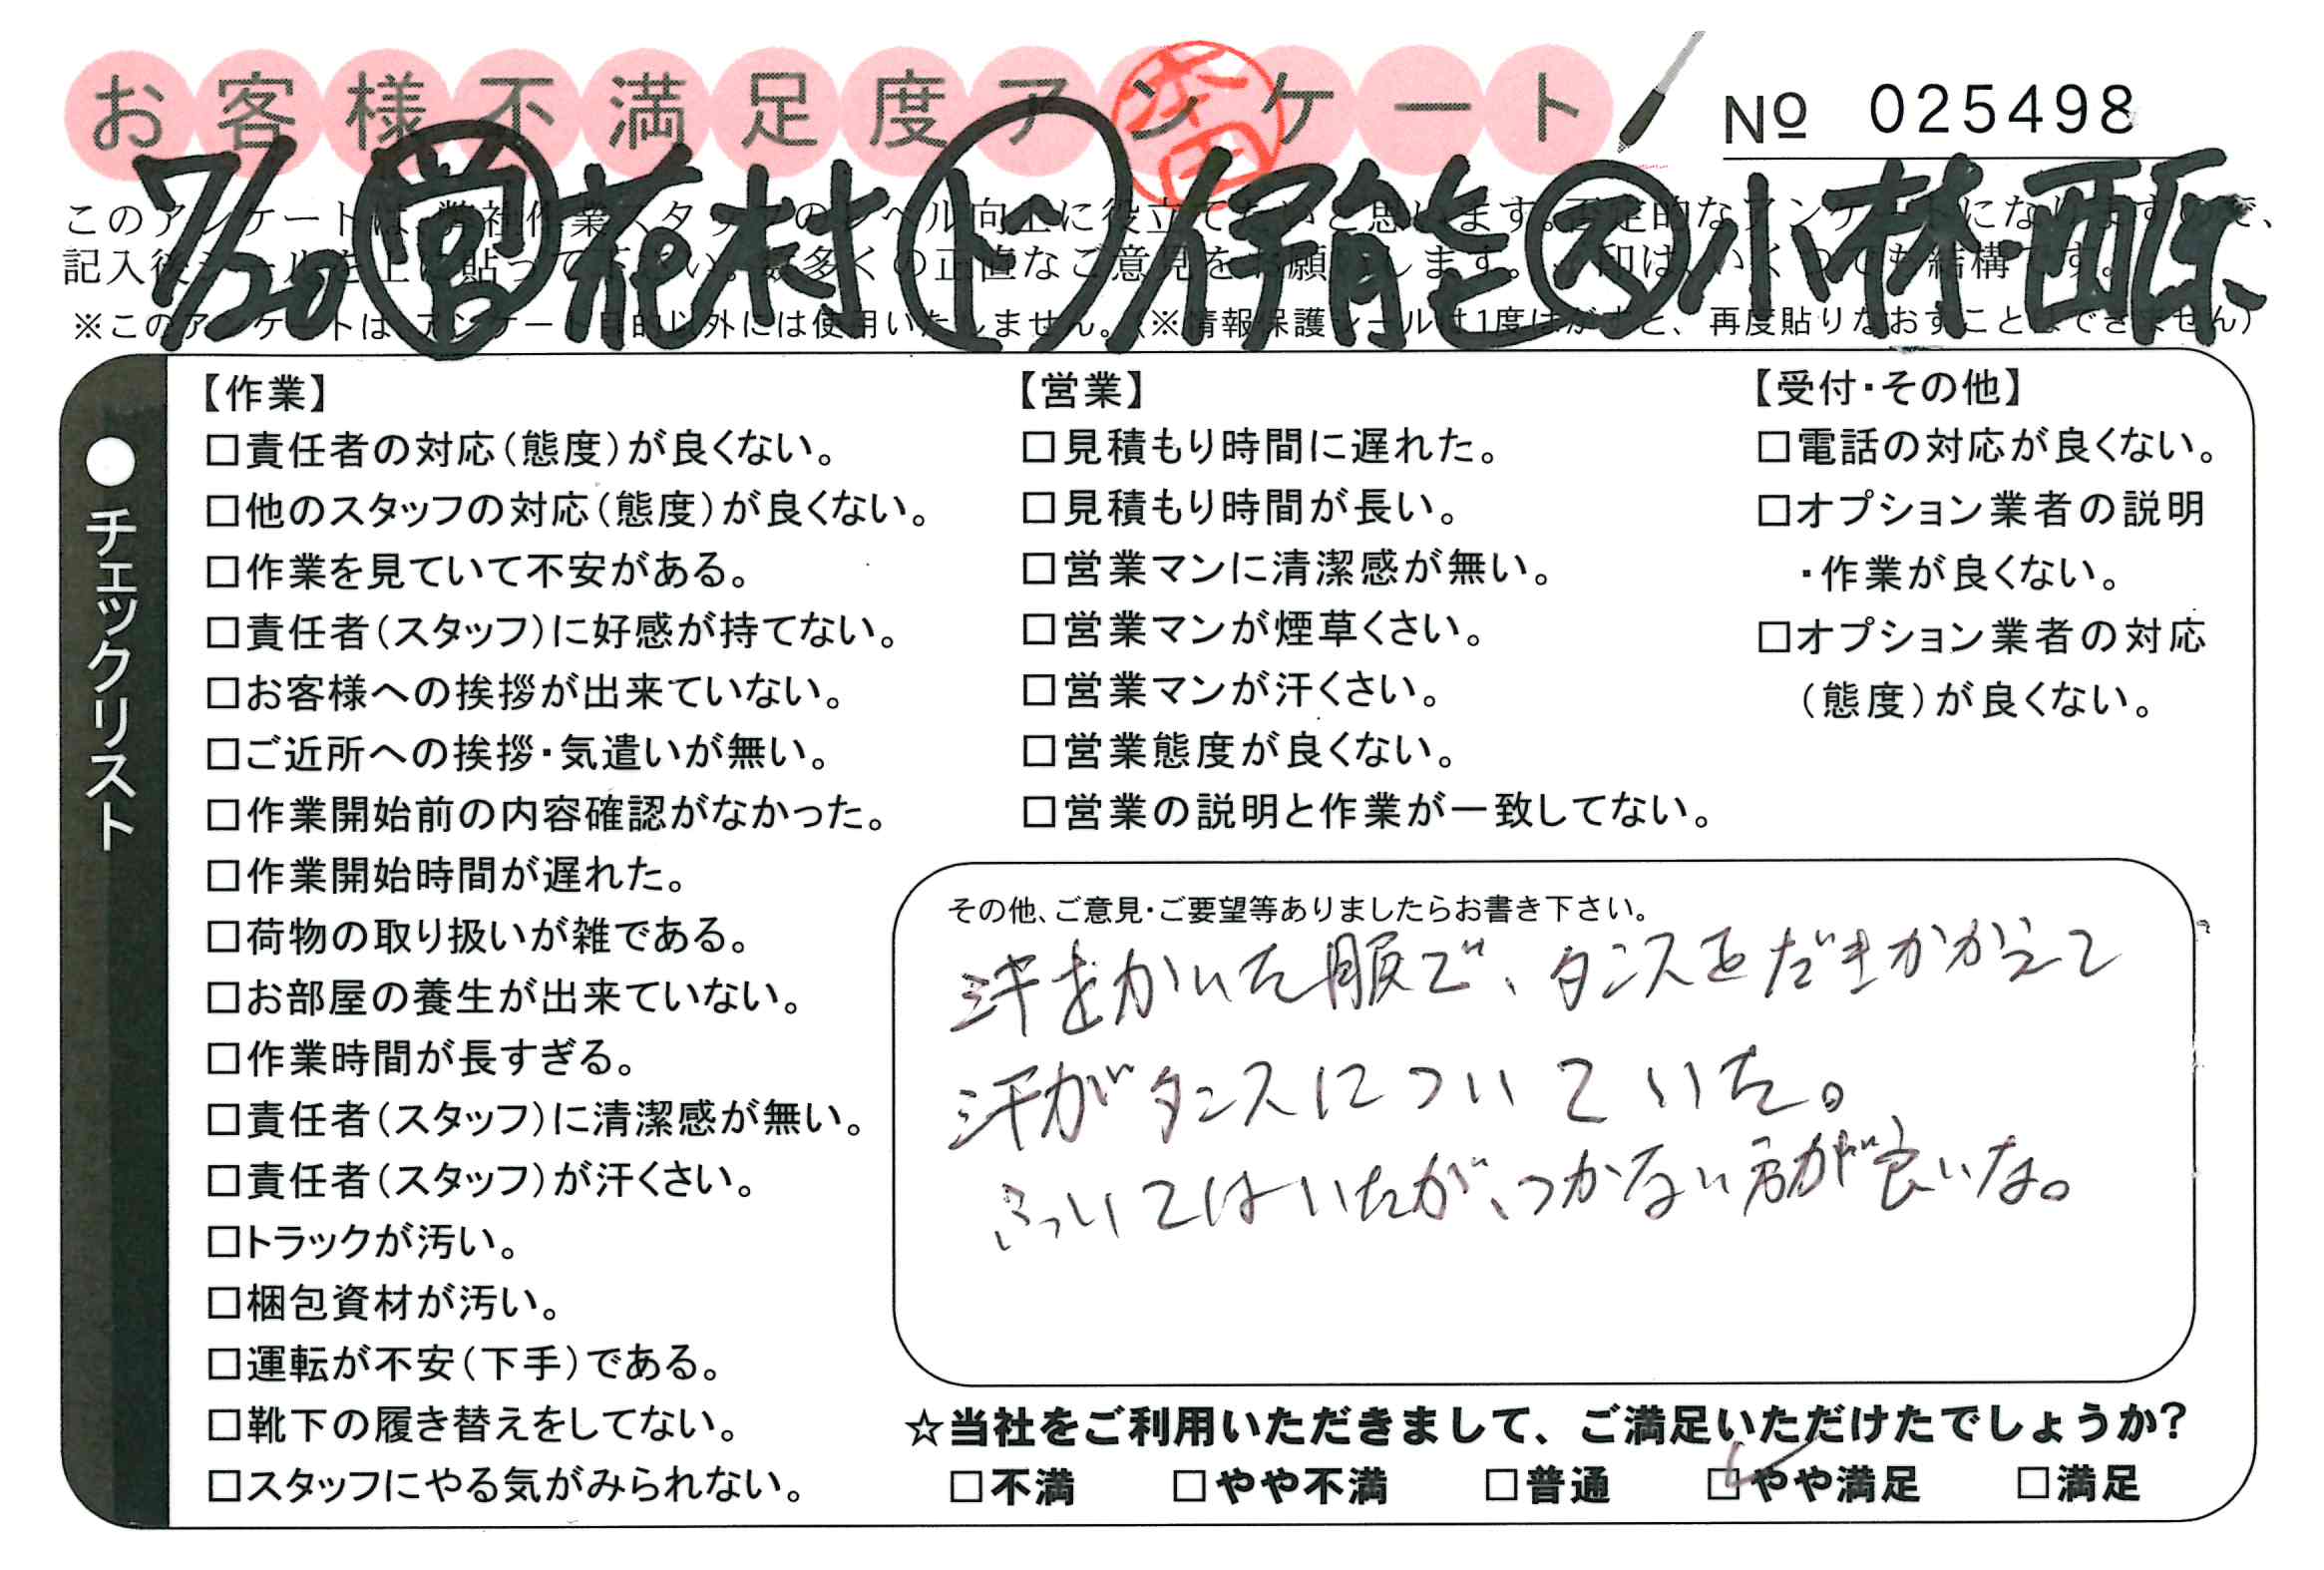 お客様不満足度アンケート
本田
№ 025498
7/20 営 花村 ド 伊能 ス 小林・西原
このアンケートは、弊社作業スタッフのレベル向上に役立てたいと思います。否定的なアンケートになりますので、
記入後シールを上に貼って下さい。数多くの正直なご意見をお願いします。✓印は、いくつでも結構です。
※このアンケートは、アンケート目的以外には使用いたしません。（※情報保護シールは1度はがすと、再度貼りなおすことはできません）
●チェックリスト
【作業】
□責任者の対応（態度）が良くない。
□他のスタッフの対応（態度）が良くない。
□作業を見ていて不安がある。
□責任者（スタッフ）に好感が持てない。
□お客様への挨拶が出来ていない。
□ご近所への挨拶・気遣いが無い。
□作業開始前の内容確認がなかった。
□作業開始時間が遅れた。
□荷物の取り扱いが雑である。
□お部屋の養生が出来ていない。
□作業時間が長すぎる。
□責任者（スタッフ）に清潔感が無い。
□責任者（スタッフ）が汗くさい。
□トラックが汚い。
□梱包資材が汚い。
□運転が不安（下手）である。
□靴下の履き替えをしてない。
□スタッフにやる気がみられない。
【営業】
□見積もり時間に遅れた。
□見積もり時間が長い。
□営業マンに清潔感が無い。
□営業マンが煙草くさい。
□営業マンが汗くさい。
□営業態度が良くない。
□営業の説明と作業が一致してない。
【受付・その他】
□電話の対応が良くない。
□オプション業者の説明
・作業が良くない。
□オプション業者の対応
（態度）が良くない。
その他、ご意見・ご要望等ありましたらお書き下さい。
汗をかいた服で、タンスをだきかかえて
汗がタンスについていた。
ふいてはいたが、つかない方が良いな。
☆当社をご利用いただきまして、ご満足いただけたでしょうか？
□不満 □やや不満 □普通 ☑やや満足 □満足